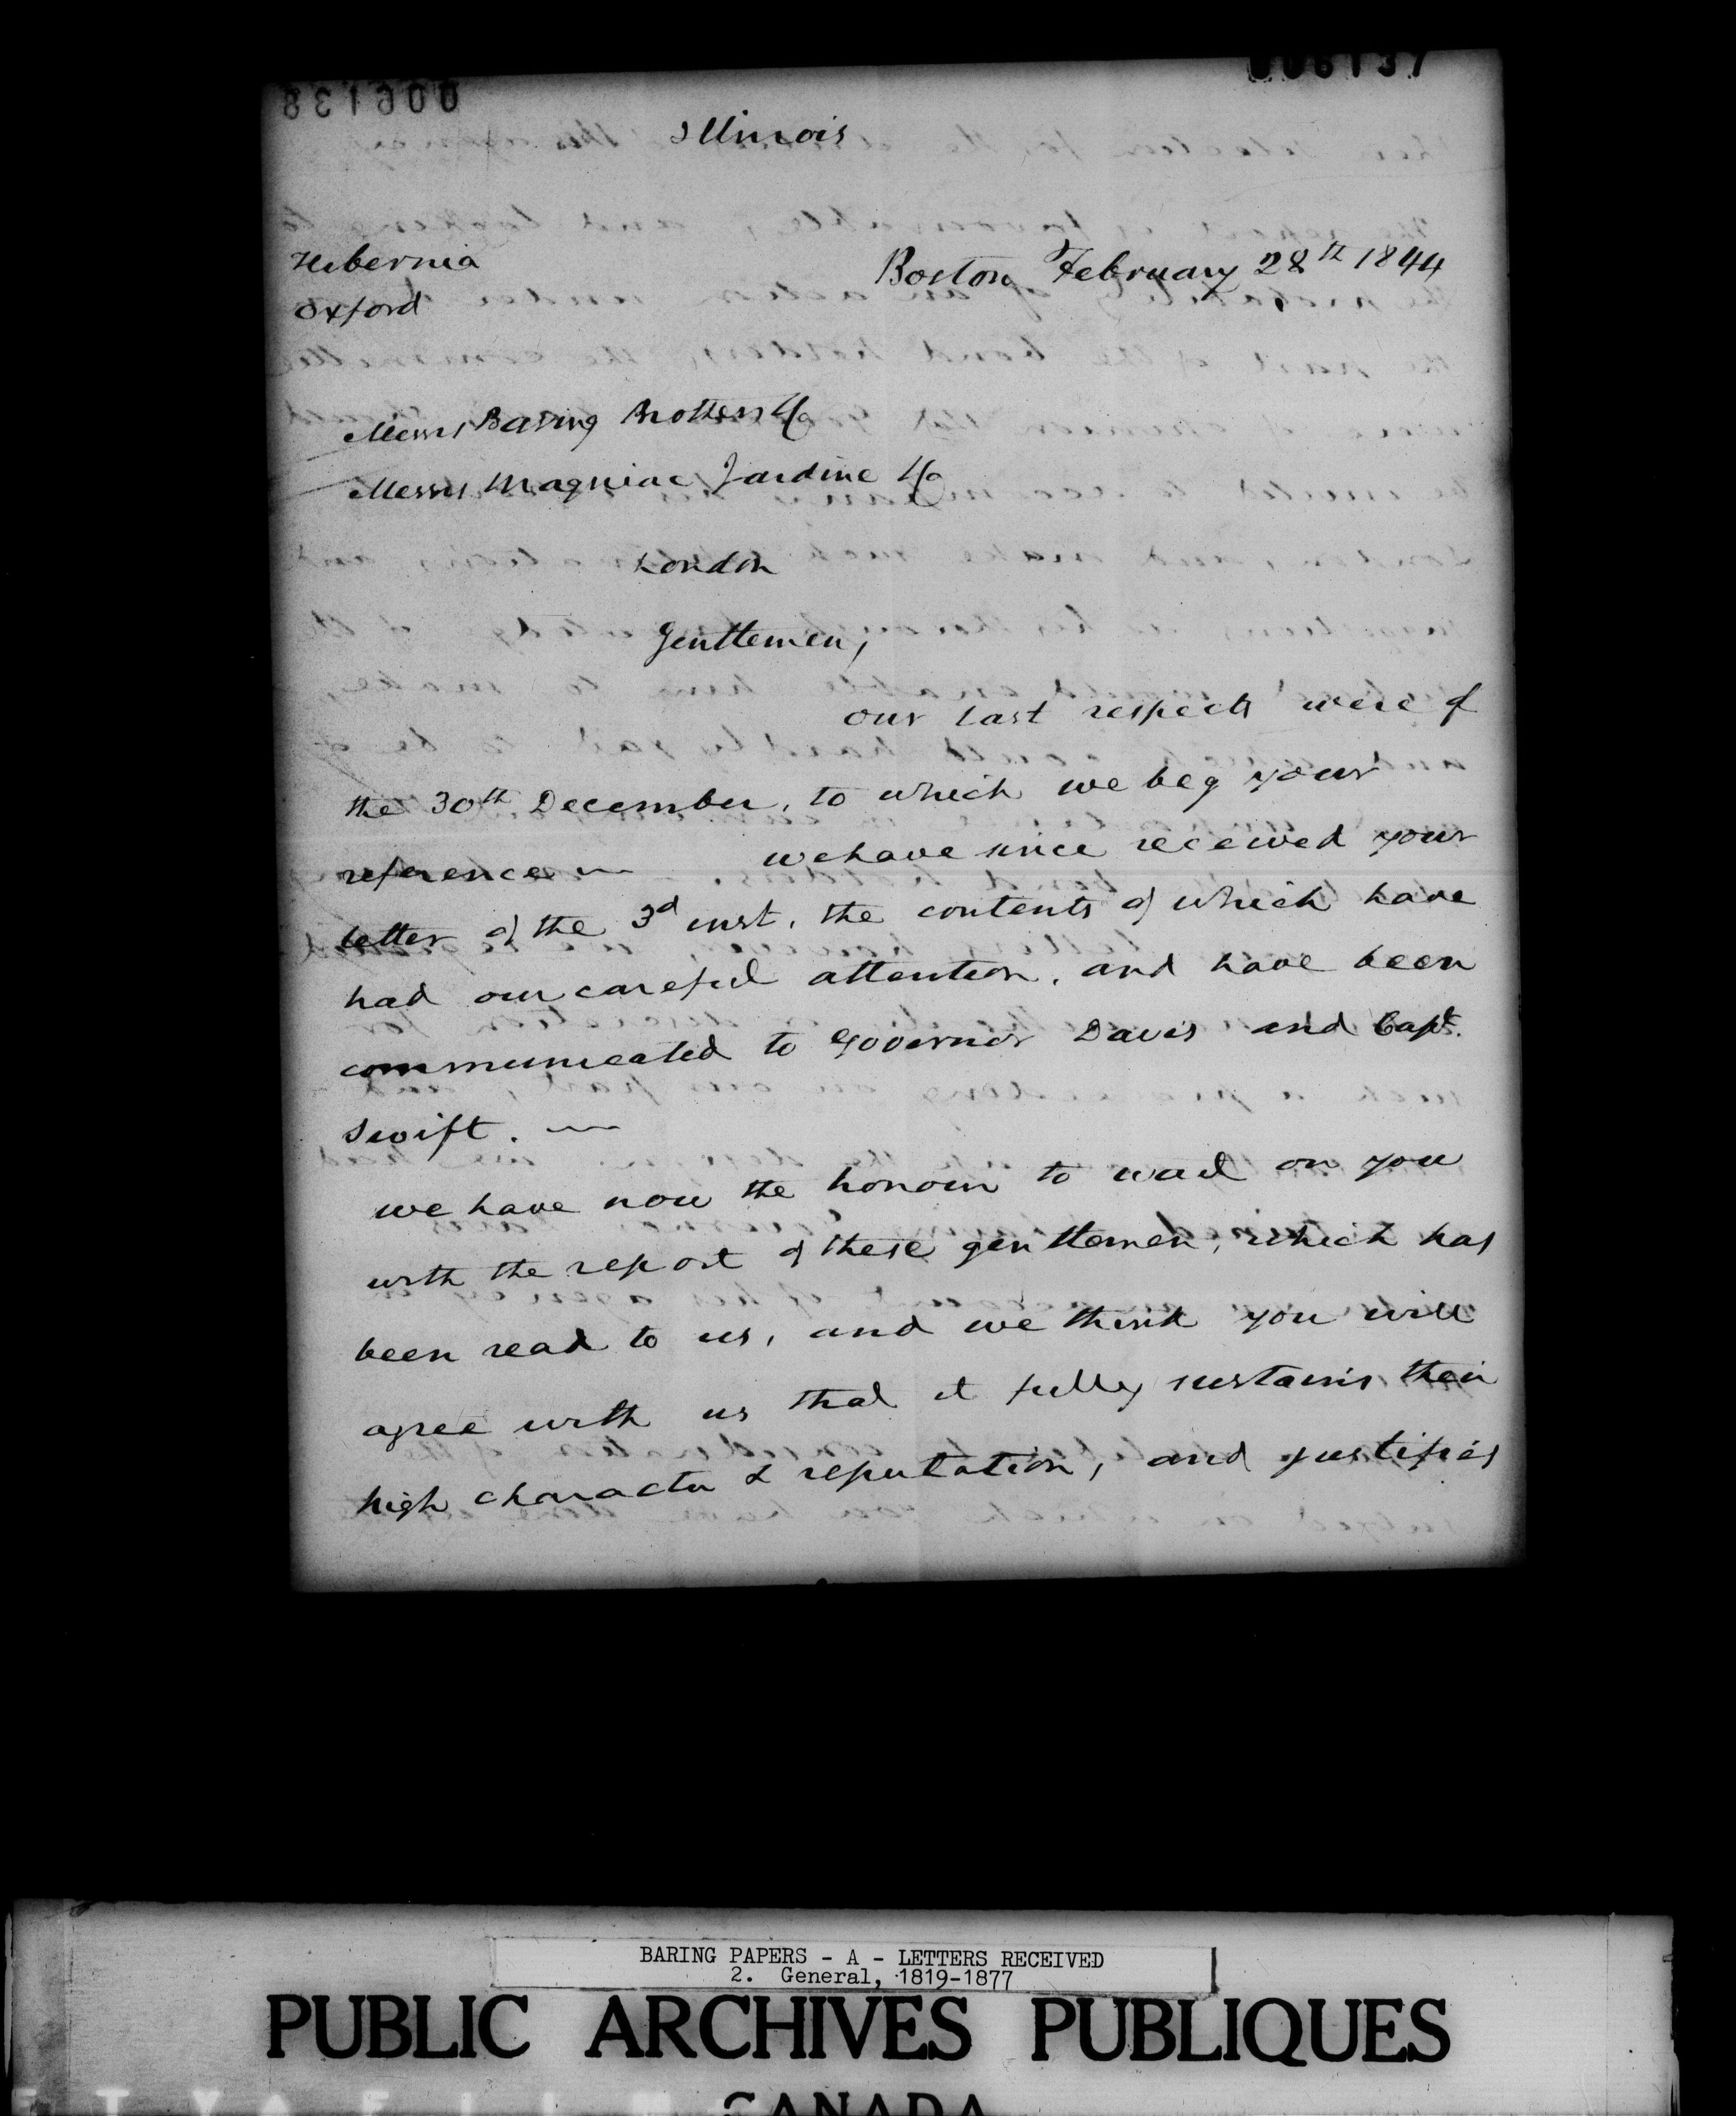 006137
006138
Illinois
Hibernia
Oxford
Boston February 28th 1844
Messrs Baring Brothers & Co
Messrs Magniac Jardine & Co
London
Gentlemen,
our last respects were of
the 30th December, to which we beg your
reference — we have since received your
letter of the 3d inst. the contents of which have
had our careful attention, and have been
communicated to Governor Davis and Capt.
Swift. —
we have now the honour to wait on you
with the report of these gentlemen, which has
been read to us, and we think you will
agree with us that it fully sustains their
high character & reputation, and justifies
BARING PAPERS - A - LETTERS RECEIVED
2. General, 1819-1877
PUBLIC ARCHIVES PUBLIQUES
CANADA